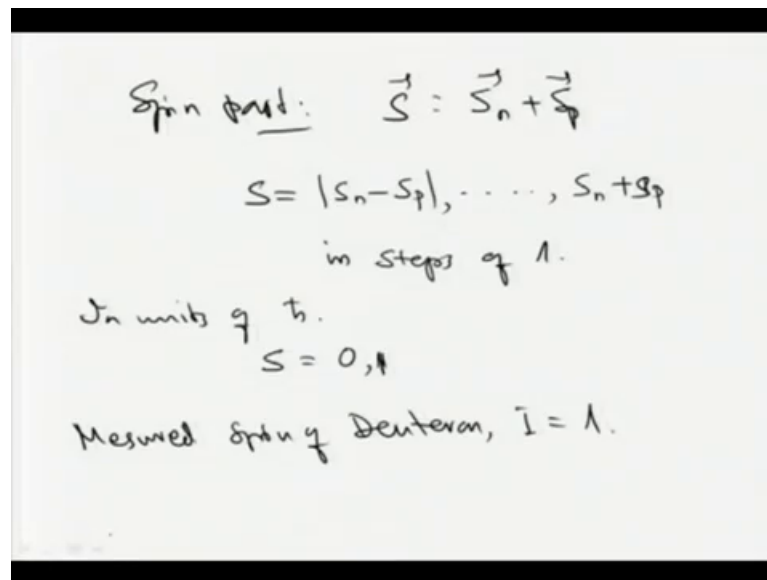 Spin part: S⃗ = S⃗n + S⃗p
S = |Sn-Sp|, ....., Sn+Sp
in steps of 1.
In units of ħ.
S = 0,1
Mesured Spin of Deuteron, I = 1.